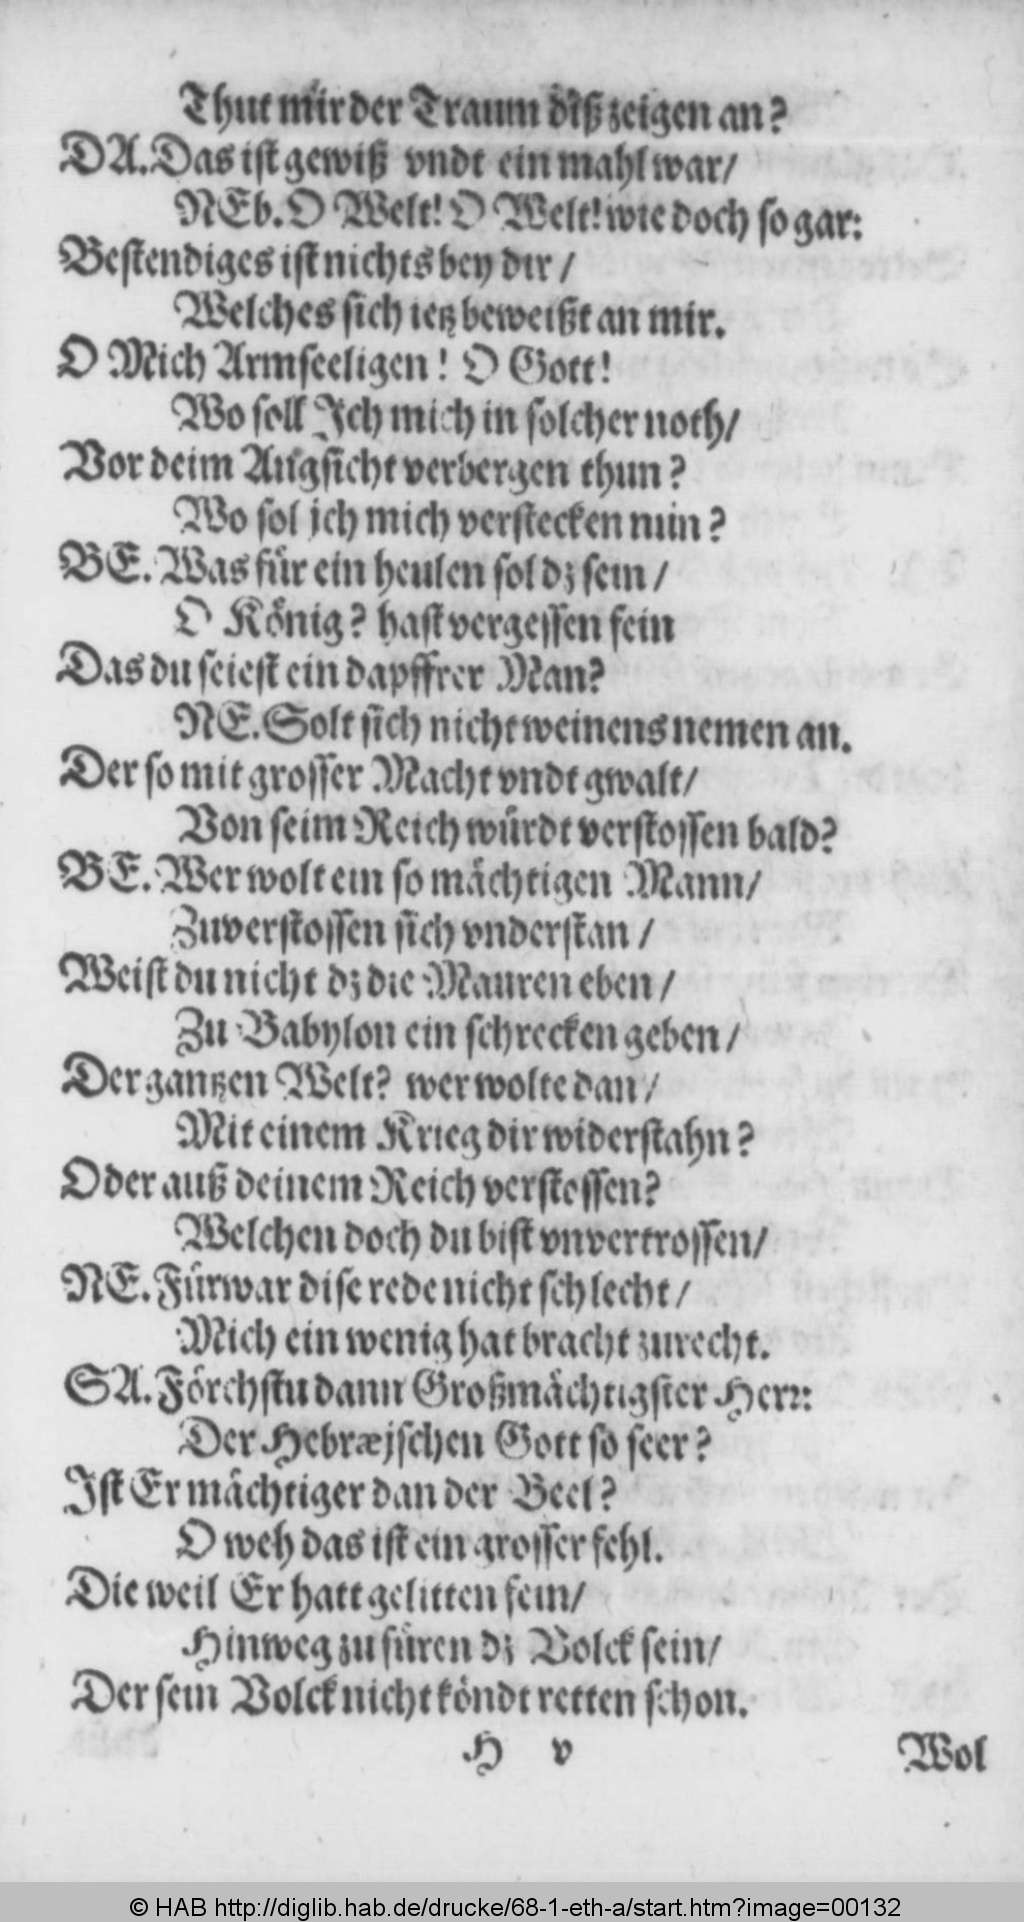 Thut mir der Traum diß zeigen an?
DA. Das ist gewiß vndt ein mahl war/
NEb. O Welt! O Welt! wie doch so gar:
Bestendiges ist nichts bey dir /
Welches sich ietz beweißt an mir.
O Mich Armseeligen! O Gott!
Wo soll Ich mich in solcher noth/
Vor deim Angsicht verbergen thun?
Wo sol ich mich verstecken nun?
BE. Was für ein heulen sol dz sein /
O König? hast vergessen fein
Das du seiest ein dapffrer Man?
NE. Solt sich nicht weinens nemen an.
Der so mit grosser Macht vndt gwalt/
Von seim Reich würdt verstossen bald?
BE. Wer wolt ein so mächtigen Mann/
Zuverstossen sich vnderstan /
Weist du nicht dz die Mauren eben /
Zu Babylon ein schrecken geben /
Der gantzen Welt? wer wolte dan /
Mit einem Krieg dir widerstahn?
Oder auß deinem Reich verstossen?
Welchen doch du bist vnvertrossen/
NE. Fürwar dise rede nicht schlecht /
Mich ein wenig hat bracht zurecht.
SA. Förchstu dann Großmächtigster Herr:
Der Hebræjschen Gott so seer?
Ist Er mächtiger dan der Beel?
O weh das ist ein grosser fehl.
Die weil Er hatt gelitten fein/
Hinweg zu füren dz Volck sein/
Der sein Volck nicht köndt retten schon.
H v Wol
© HAB http://diglib.hab.de/drucke/68-1-eth-a/start.htm?image=00132